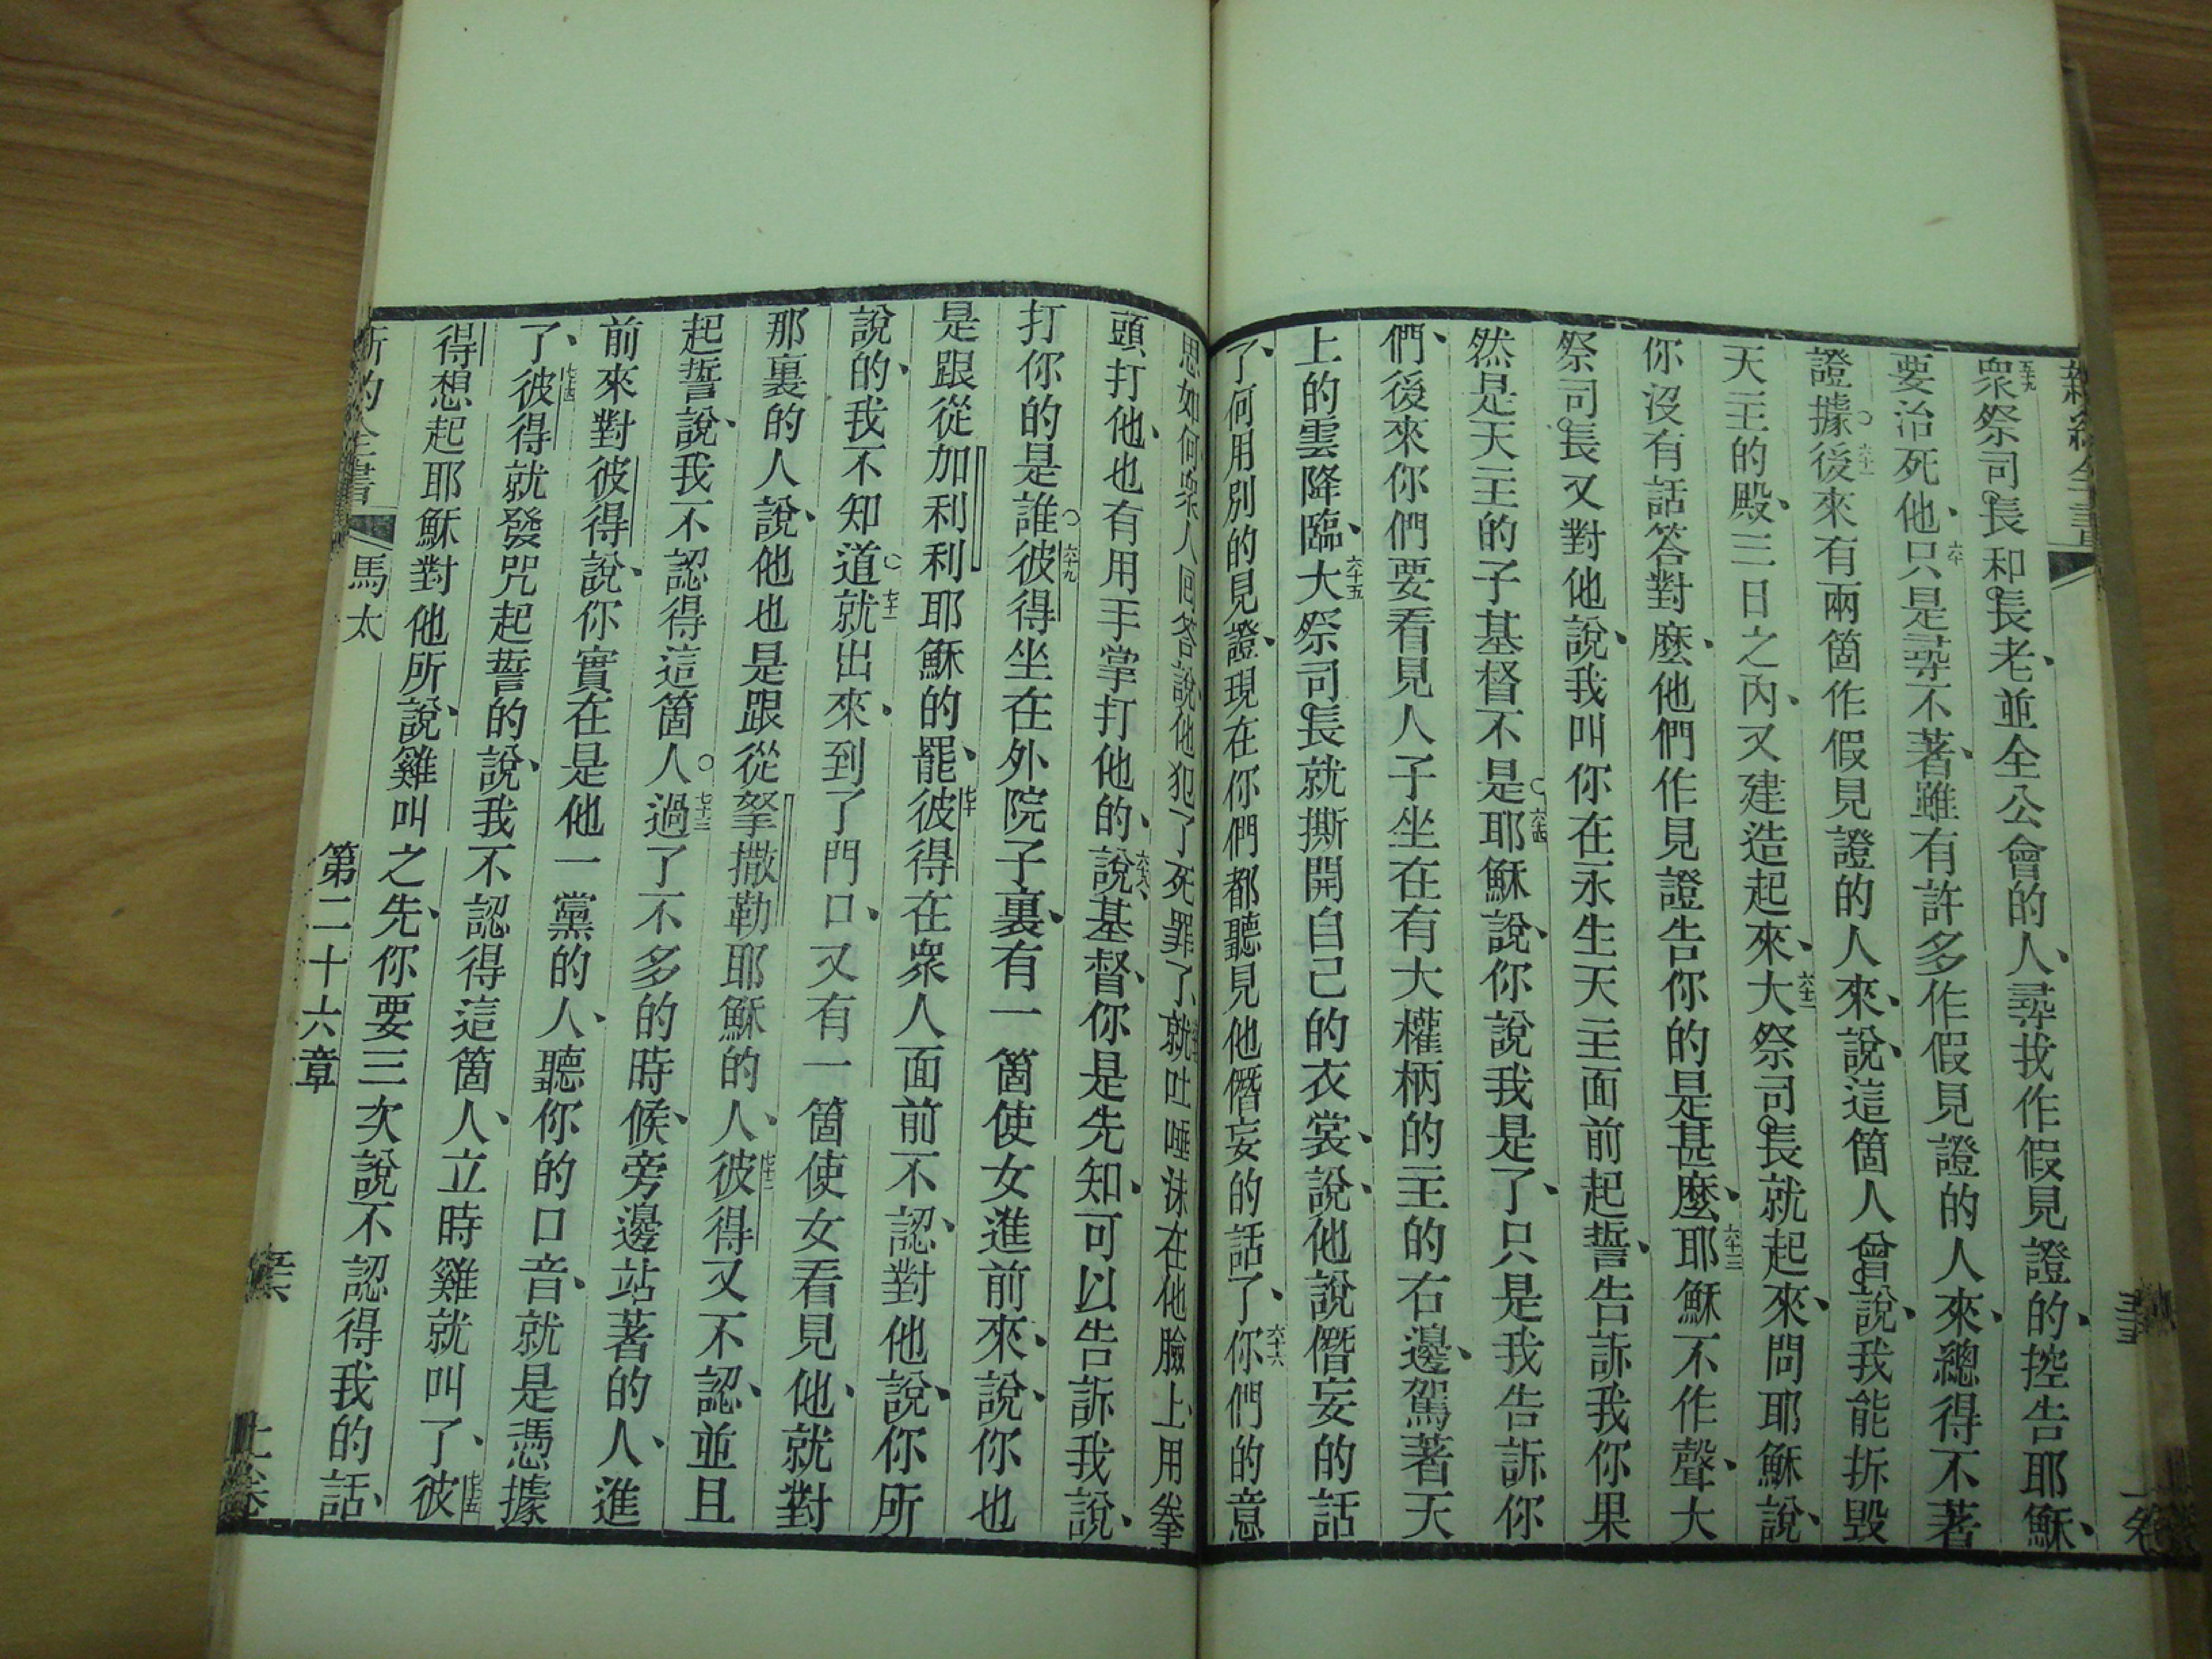 五十九衆祭司長和長老、並全公會的人、尋找作假見證的、控告耶穌、
要治死他、六十只是尋不著、雖有許多作假見證的人來、總得不著
證據○六十一後來有兩箇作假見證的人來、說、這箇人曾說、我能拆毀
天主的殿、三日之內、又建造起來、六十二大祭司長就起來、問耶穌說、
你沒有話答對麼、他們作見證告你的是甚麼、六十三耶穌不作聲、大
祭司長又對他說、我叫你在永生天主面前起誓、告訴我你果
然是天主的子基督不是○六十四耶穌說、你說我是了、只是我告訴你
們、後來你們要看見人子坐在有大權柄的主的右邊、駕著天
上的雲降臨、六十五大祭司長就撕開自己的衣裳、說、他說僭妄的話
了、何用別的見證、現在你們都聽見他僭妄的話了、六十六你們的意
思如何、衆人回答說、他犯了死罪了、就吐唾沫在他臉上、用拳
頭打他、也有用手掌打他的、六十八說、基督、你是先知、可以告訴我說、
打你的是誰○六十九彼得坐在外院子裏、有一箇使女進前來、說、你也
是跟從加利利耶穌的罷、七十彼得在衆人面前不認、對他說、你所
說的、我不知道○七十一就出來、到了門口、又有一箇使女看見他、就對
那裏的人說、他也是跟從拏撒勒耶穌的人、七十二彼得又不認、並且
起誓說、我不認得這箇人○七十三過了不多的時候、旁邊站著的人、進
前來對彼得說、你實在是他一黨的人、聽你的口音、就是憑據
了、七十四彼得就發咒起誓的說、我不認得這箇人、立時雞就叫了、七十五彼
得想起耶穌對他所說、雞叫之先、你要三次說不認得我的話、
新約全書 馬太 第二十六章